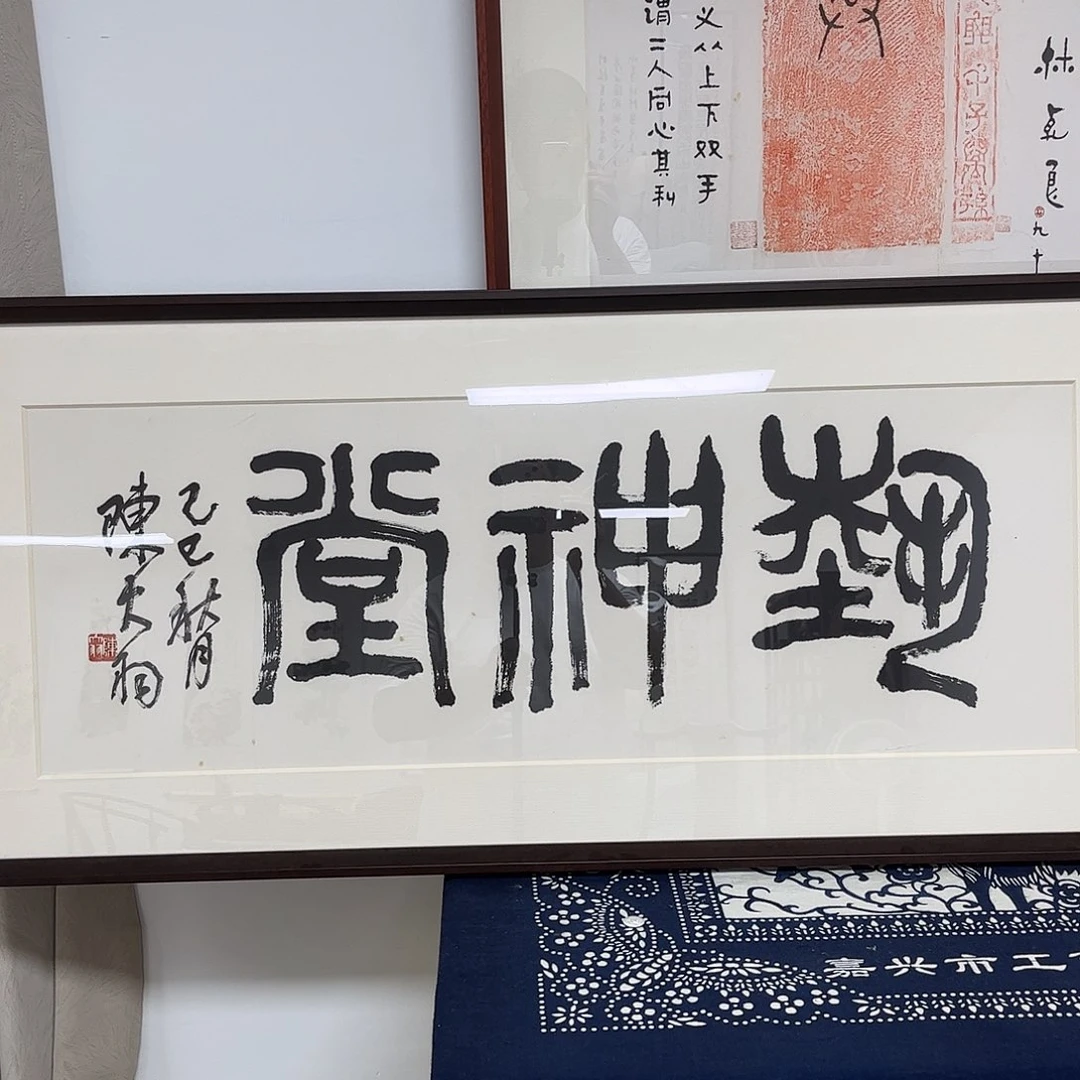 林乾良
九十
义从上下双手
谓二人同心其利
埶神堂
己巳秋月
陳大羽
嘉兴市工